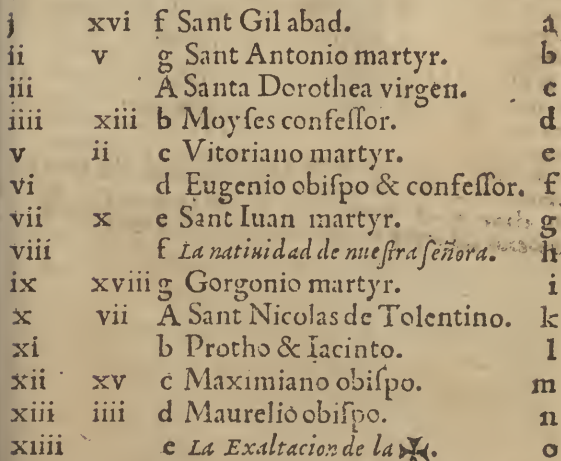 j xvi f Sant Gil abad. a
ii v g Sant Antonio martyr. b
iii A Santa Dorothea virgen. c
iiii xiii b Moyſes confeſſor. d
v ii c Vitoriano martyr. e
vi d Eugenio obiſpo & confeſſor. f
vii x e Sant Iuan martyr. g
viii f La natiuidad de nueſtra ſeñora. h
ix xviii g Gorgonio martyr. i
x vii A Sant Nicolas de Tolentino. k
xi b Protho & Iacinto. l
xii xv c Maximiano obiſpo. m
xiii iiii d Maurelio obiſpo. n
xiiii e La Exaltacion de la ✠. o